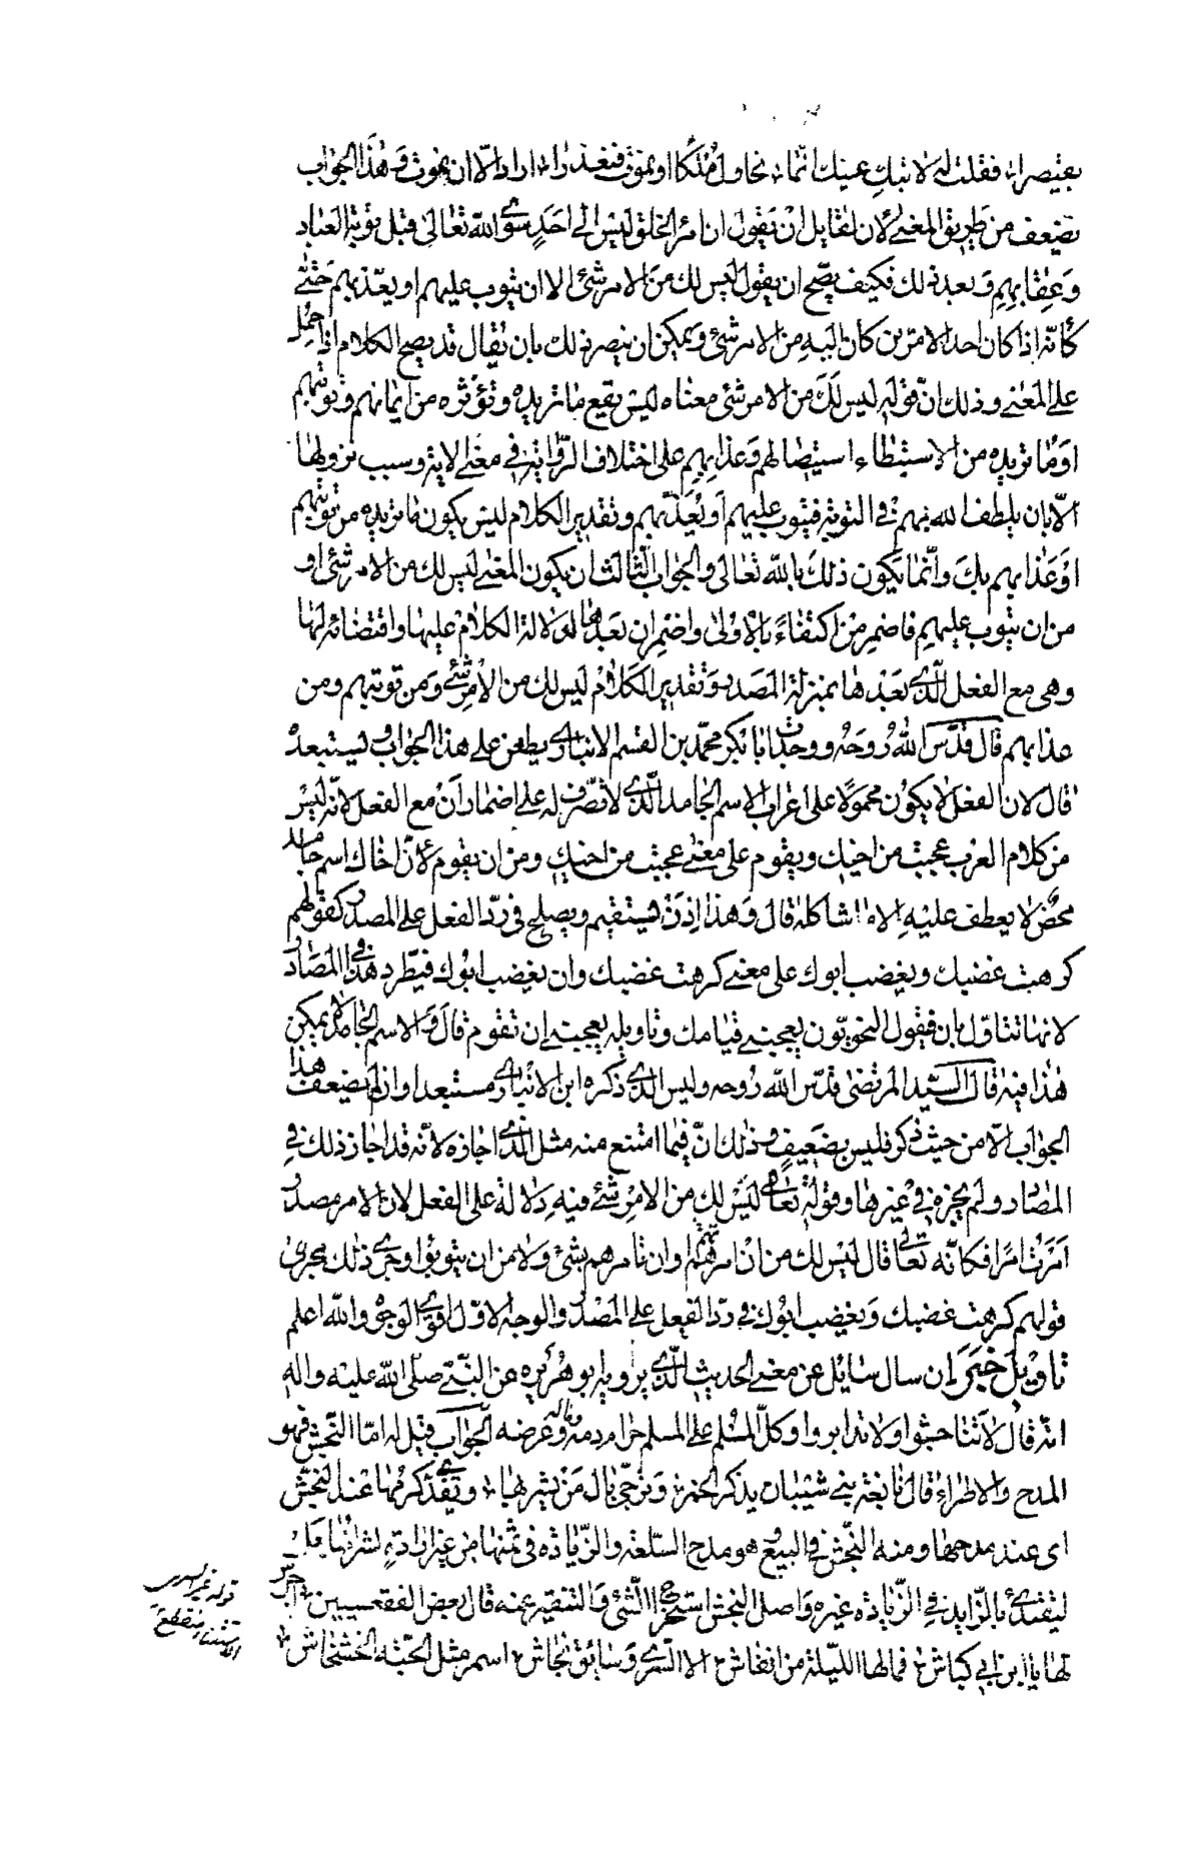 بقيصرا، فقلت له لا تبك عينك انما، نحاول ملكا او نموت فنعذرا، اراد الّا ان نموت وهذا الجواب
يضعف من طريق المعنى لان لقايل ان يقول ان امر الخلق ليس الى احد سوى الله تعالى قبل توبة العباد
وعقابهم وبعد ذلك فكيف يصح ان يقول ليس لك من الامر شئ الا ان يتوب عليهم او يعذبهم حتى
كأنه اذا كان احد الامرين كان اليه من الامر شئ ويمكن ان ينصر ذلك بان يقال قد يصح الكلام اذا حمل
على المعنى وذلك انّ قوله ليس لك من الامر شئ معناه ليس يقع ما تريده وتؤثره من ايمانهم وتوبتهم
او ما تريده من الاستبطاء استيصالهم وعذابهم على اختلاف الرواية في معنى الاية وسبب نزولها
الّا بان يلطف الله بهم في التوبة فيتوب عليهم او يعذبهم وتقدير الكلام ليس يكون ما تريده من توبتهم
او عذابهم بك وانّما يكون ذلك بالله تعالى والجواب الثالث ان يكون المعنى ليس لك من الامر شئ او
من ان يتوب عليهم فاضمر من اكتفاءً بالاولى واضمر ان بعدها لدلالة الكلام عليها واقتضائه لها
وهى مع الفعل الّذى بعدها بمنزلة المصدر وتقدير الكلام ليس لك من الامر شئ ومن توبتهم ومن
عذابهم قال قدّس الله روحه ووجدت ابا بكر محمّد بن القسم الانبارى يطعن على هذا الجواب ويستبعده
قال لان الفعل لا يكون محمولًا على اعراب الاسم الجامد الّذى لا تصرّف له على اضمار أن مع الفعل لانه ليس
من كلام العرب عجبت من اخيك ويقوم على معنى عجبت من اخيك ومن ان يقوم لأنّ اخاك اسم جامد
محض لا يعطف عليه الا ما شاكله قال وهذا اذن يستقيم ويصلح في ردّ الفعل على المصدر كقولهم
كرهت غضبك ويغضب ابوك على معنى كرهت غضبك وان يغضب ابوك فيطرد هذا في المصادر
لانها تتاوّل بان فيقول النحويّون يعجبنى قيامك وتاويله يعجبنى ان تقوم قال والاسم الجامد لا يمكن
هذا فيه قال السّيد المرتضى قدّس الله روحه وليس الذى ذكره ابن الانبارى مستبعدا وان لم يضعف هذا
الجواب الّا من حيث ذكر فليس بضعيف وذلك انّ فيما امتنع منه مثل الذى اجازه لأنّه قد اجاز ذلك في
المصادر ولم يجزه في غيرها وقوله تعالى ليس لك من الامر شئ فيه دلالة على الفعل لان الامر مصدر
امرت امرًا فكانّه تعالى قال ليس لك من ان تامرهم وان تامرهم بشئ ولا من ان يتوبوا وجرى ذلك مجرى
قولهم كرهت غضبك ويغضب ابوك في ردّ الفعل على المصدر والوجه الاوّل اقوى الوجوه والله اعلم
تاويل خبر ان سال سائل عن معنى الحديث الّذى يرويه ابو هريره عن النبيّ صلّى الله عليه واله
انّه قال لا تناجشوا ولا تدابروا وكلّ المسلم على المسلم حرام دمه وماله وعرضه الجواب قيل له امّا النّجش فهو
المدح والاطراء قال نابغة بنى شيبان يذكر الخمر، وترجّى بال من يشربها، ويفدّى كرمها عند النجش
اى عند مدحها ومنه النّجش في البيع وهو مدح السّلعة والزّيادة في ثمنها من غير ارادة لشرائها بل
ليقتدى بالزّايد في الزّيادة غيره واصل النجش استخراج الشّئ والتنقير عنه قال بعض الفقعسيين، اجرس
لها يا ابن ابى كباش، فما لها الليلة من انفاش، الا السّرى وسائق نجاش، اسمر مثل الحيّة الخشخاش،
قوله غير السرى
الاستثناء منقطع